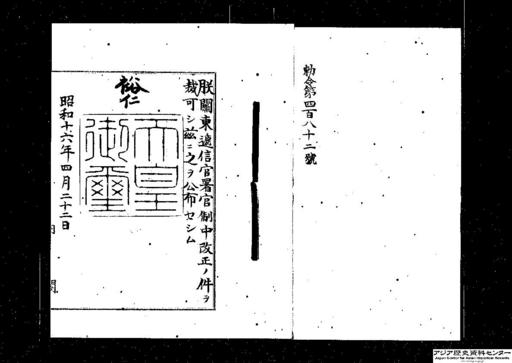 勅令第四百八十二號
朕關東遞信官署官制中改正ノ件ヲ
裁可シ茲ニ之ヲ公布セシム
裕仁
天皇
御璽
昭和十六年四月二十二日
アジア歴史資料センター
Japan Center for Asian Historical Records